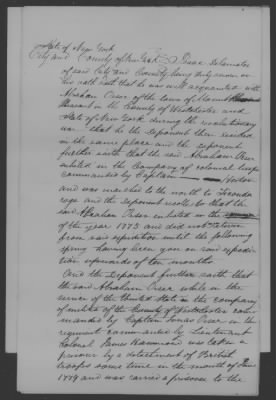 State of New York
City and County of New York Isaac Delamater
of said City and County being duly sworn on
his oath saith that he was well acquainted with
Abraham Orser of the town of Mount
Pleasant in the County of Westchester and
State of New York during the revolutionary
war that he the deponent then resided
in the same place and the deponent
further saith that the said Abraham Orser
enlisted in the Company of colonial troops
commanded by Captain
and was marched to the north to Ticonde
roga and the deponent recollects that the
said Abraham Orser enlisted in the
of the year 1775 and did not return
from said expedition until the following
spring having been gone on said expedi
tion upwards of ten months
And the Deponent further saith that
the said Abraham Orser while in the
service of the United States in the company
of militia of the County of Westchester com
manded by Captain Jonas Orser in the
regiment commanded by Lieutenant
Colonel James Hammond was taken a
prisoner by a detachment of British
troops some time in the month of June
1779 and was carried a prisoner to the